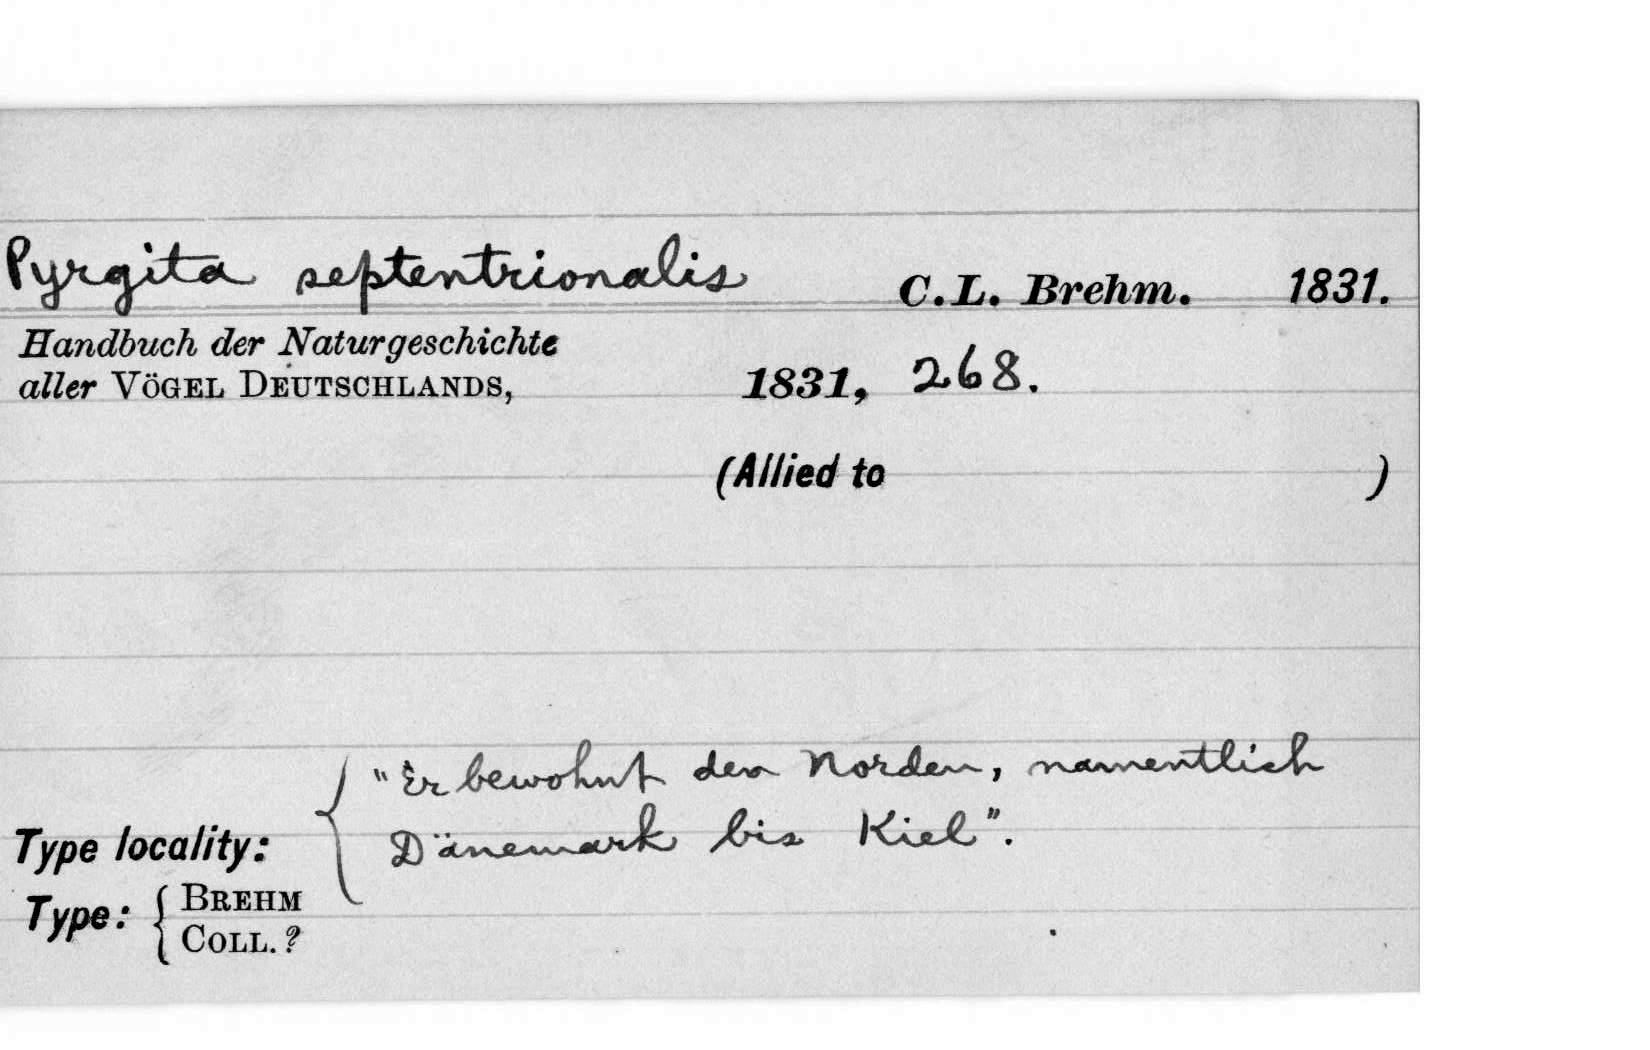 Pyrgita septentrionalis C.L. Brehm. 1831.
Handbuch der Naturgeschichte
aller VÖGEL DEUTSCHLANDS, 1831, 268.
(Allied to )
"Er bewohnt den Norden, namentlich
Dänemark bis Kiel".
Type locality:
Type: { BREHM
COLL. ?